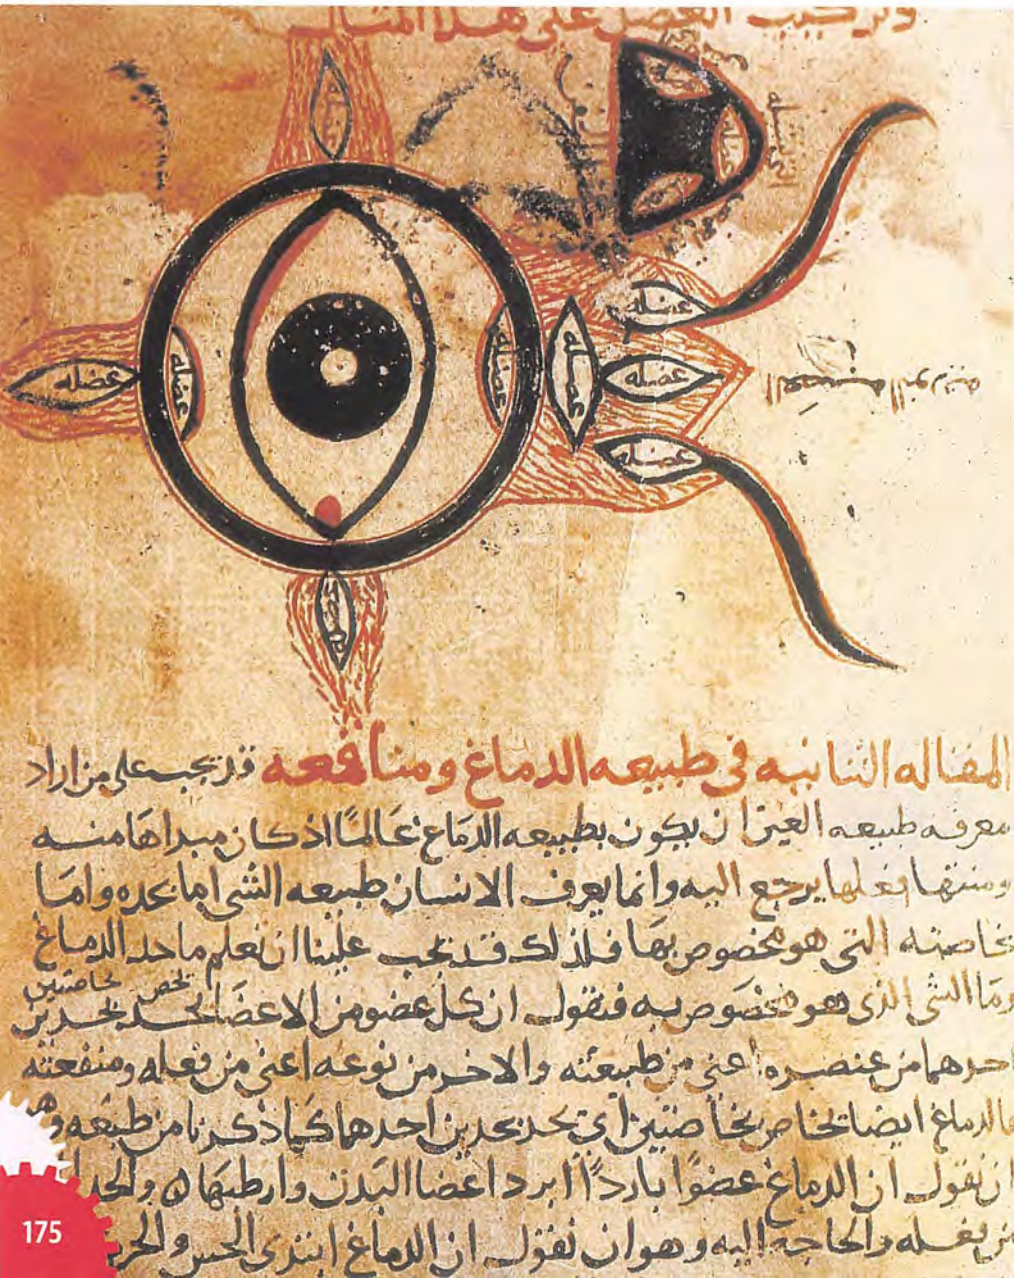 وتركيب العضل على هذا المثال
عضله
عضله
عضله
عضله
عضله
عضله
عضله
عضله
عضله
العصبه النوريه
المقاله الثانيه في طبيعه الدماغ ومنافعه قد يجب على من اراد
معرفه طبيعه العين ان يكون بطبيعه الدماغ عالمًا اذ كان مبداها منه
ومنتها فعلها يرجع اليه وانما يعرف الانسان طبيعه الشي اما بحده واما
بخاصته التي هو مخصوص بها فلذلك قد يجب علينا ان نعلم ما حد الدماغ
وما الشي الذي هو مخصوص به فنقول ان كل عضو من الاعضا يحد بحدين
يخص بخاصتين
احدهما من عنصره اعني من طبيعته والاخر من نوعه اعني من فعله ومنفعته
فالدماغ ايضا بخاصتين اي يحد بحدين احدهما كما ذكرنا من طبعه وهو
ان نقول ان الدماغ عضوًا باردًا ابرد اعضا البدن وارطبها والحد
من فعله والحاجه اليه وهو ان نقول ان الدماغ ابتدى الحس والحر
175